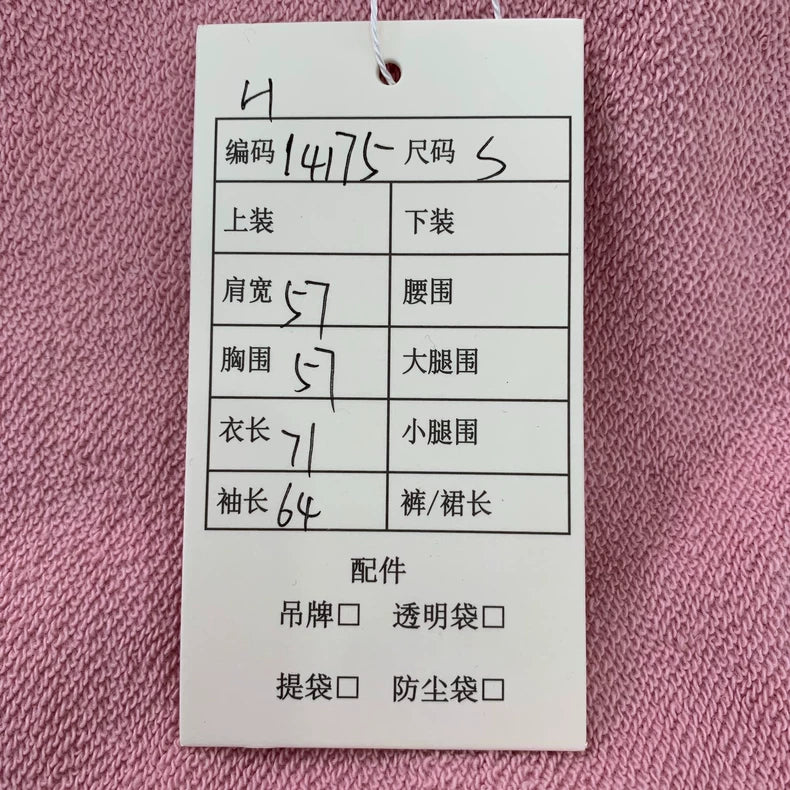 H
编码 14175 尺码 S
上装 下装
肩宽 57 腰围
胸围 57 大腿围
衣长 71 小腿围
袖长 64 裤/裙长
配件
吊牌□ 透明袋□
提袋□ 防尘袋□